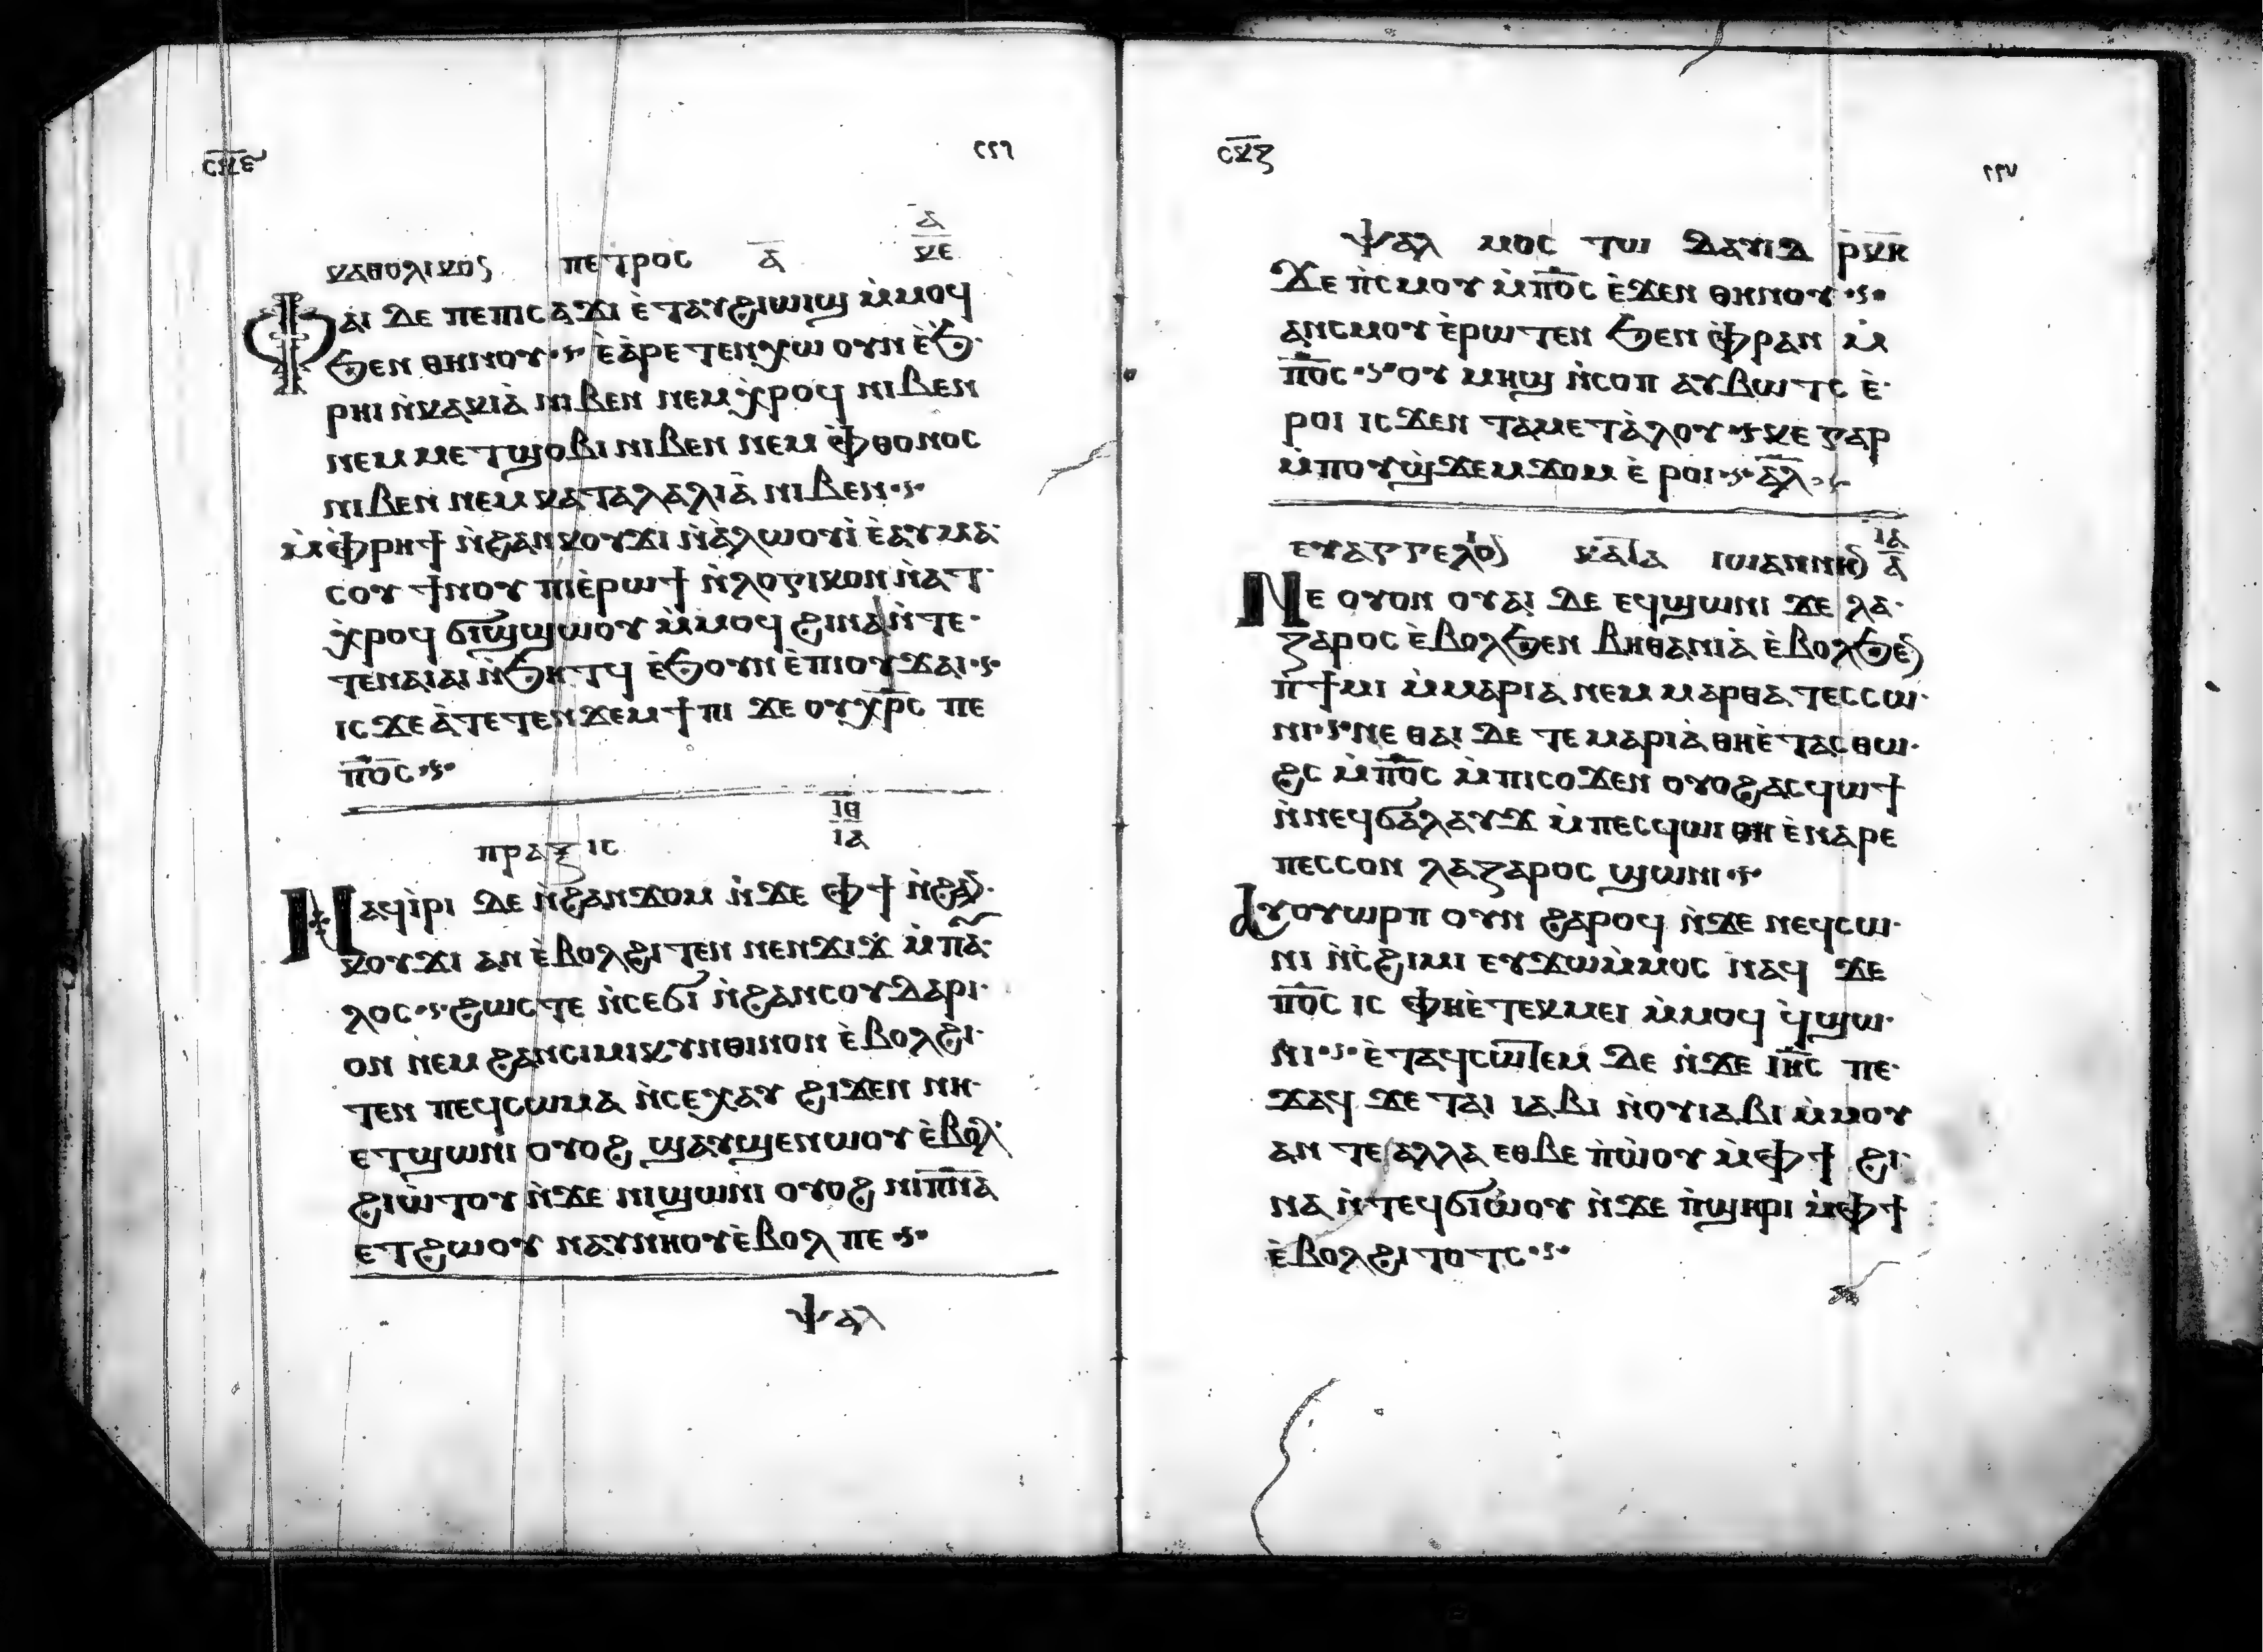 ⲥ̅ⲕ̅ⲋ̅ ٢٢٦
ⲁ̅
ⲕⲁⲑⲟⲗⲓⲕⲟⲥ ⲡⲉⲧⲣⲟⲥ ⲁ̅ ⲕⲉ
Ⲫⲁⲓ ⲇⲉ ⲡⲉⲡⲓⲥⲁϫⲓ ⲉ̀ⲧⲁⲩϩⲓⲱⲓϣ ⲙ̀ⲙⲟϥ
ϧⲉⲛ ⲑⲏⲛⲟⲩ ⲉⲁ̀ⲣⲉⲧⲉⲛⲭⲱ ⲟⲩⲛ ⲉ̀ϧ̀
ⲣⲏⲓ ⲛ̀ⲕⲁⲕⲓⲁ̀ ⲛⲓⲃⲉⲛ ⲛⲉⲙ ⲭ̀ⲣⲟϥ ⲛⲓⲃⲉⲛ
ⲛⲉⲙ ⲙⲉⲧϣⲟⲃⲓ ⲛⲓⲃⲉⲛ ⲛⲉⲙ ⲫ̀ⲑⲟⲛⲟⲥ
ⲛⲓⲃⲉⲛ ⲛⲉⲙ ⲕⲁⲧⲁⲗⲁⲗⲓⲁ̀ ⲛⲓⲃⲉⲛ
ⲙ̀ⲫ̀ⲣⲏϯ ⲛ̀ϩⲁⲛⲕⲟⲩϫⲓ ⲛ̀ⲁ̀ⲗⲱⲟⲩⲓ̀ ⲉ̀ⲁⲩⲙⲁ
ⲥⲟⲩ ϯⲛⲟⲩ ⲡⲓⲉ̀ⲣⲱϯ ⲛ̀ⲗⲟⲅⲓⲕⲟⲛ ⲛ̀ⲁⲧ
ⲭ̀ⲣⲟϥ ϭⲓϣϣⲱⲟⲩ ⲙ̀ⲙⲟϥ ϩⲓⲛⲁ ⲛ̀ⲧⲉ
ⲧⲉⲛⲁⲓⲁⲓ ⲛ̀ϧⲏⲧϥ ⲉ̀ϧⲟⲩⲛ ⲉ̀ⲡⲓⲟⲩϫⲁⲓ
ⲓⲥϫⲉ ⲁ̀ⲧⲉⲧⲉⲛϫⲉⲙϯⲡⲓ ϫⲉ ⲟⲩⲭⲣ̅ⲥ ⲡⲉ
ⲡⲟ̅ⲥ̅
ⲓⲑ
ⲡⲣⲁⲝⲓⲥ ⲓⲁ
Ⲛⲁϥⲓ̀ⲣⲓ ⲇⲉ ⲛ̀ϩⲁⲛϫⲟⲙ ⲛ̀ϫⲉ ⲫ̀ϯ ⲛ̀ϩⲁⲛ
ⲕⲟⲩϫⲓ ⲁⲛ ⲉ̀ⲃⲟⲗϩⲓⲧⲉⲛ ⲛⲉⲛϫⲓϫ ⲙ̀ⲡⲁ̅
ⲗⲟⲥ ϩⲱⲥⲧⲉ ⲛ̀ⲥⲉϭⲓ ⲛ̀ϩⲁⲛⲥⲟⲩⲇⲁⲣⲓ
ⲟⲛ ⲛⲉⲙ ϩⲁⲛⲥⲓⲙⲓⲕⲩⲛⲑⲓⲛⲟⲛ ⲉ̀ⲃⲟⲗϩⲓ
ⲧⲉⲛ ⲡⲉϥⲥⲱⲙⲁ ⲛ̀ⲥⲉⲭⲁⲩ ϩⲓϫⲉⲛ ⲛⲏ
ⲉⲧϣⲱⲛⲓ ⲟⲩⲟϩ ϣⲁⲩϣⲉⲛⲱⲟⲩ ⲉ̀ⲃⲟⲗ
ϩⲓⲱ̀ⲧⲟⲩ ⲛ̀ϫⲉ ⲛⲓϣⲱⲛⲓ ⲟⲩⲟϩ ⲛⲓⲡ̅ⲛ̅ⲁ̅
ⲉⲧϩⲱⲟⲩ ⲛⲁⲩⲛⲏⲟⲩ ⲉ̀ⲃⲟⲗ ⲡⲉ
ⲯⲁⲗ
ⲥ̅ⲕ̅ⲍ̅ ٢٢٧
ⲯⲁⲗⲙⲟⲥ ⲧⲱ ⲇⲁⲩⲓⲇ ⲣ̅ⲕ̅ⲏ̅
Ϫⲉ ⲡ̀ⲥⲙⲟⲩ ⲙ̀ⲡⲟ̅ⲥ̅ ⲉ̀ϫⲉⲛ ⲑⲏⲛⲟⲩ
ⲁⲛⲥⲙⲟⲩ ⲉ̀ⲣⲱⲧⲉⲛ ϧⲉⲛ ⲫ̀ⲣⲁⲛ ⲙ̀
ⲡⲟ̅ⲥ̅ ⲟⲩⲙⲏϣ ⲛ̀ⲥⲟⲡ ⲁⲩⲃⲱⲧⲥ ⲉ̀
ⲣⲟⲓ ⲓⲥϫⲉⲛ ⲧⲁⲙⲉⲧⲁ̀ⲗⲟⲩ ⲕⲉ ⲅⲁⲣ
ⲙ̀ⲡⲟⲩϣ̀ϫⲉⲙϫⲟⲙ ⲉ̀ⲣⲟⲓ ⲁ̅ⲗ̅
ⲓⲁ
ⲉⲩⲁⲅⲅⲉⲗⲓⲟⲛ ⲕⲁⲧⲁ ⲓⲱⲁⲛⲛⲏⲛ ⲁ̅
Ⲛⲉ ⲟⲩⲟⲛ ⲟⲩⲁⲓ ⲇⲉ ⲉϥϣⲱⲛⲓ ϫⲉ ⲗⲁ
ⲍⲁⲣⲟⲥ ⲉ̀ⲃⲟⲗϧⲉⲛ ⲃⲏⲑⲁⲛⲓⲁ̀ ⲉ̀ⲃⲟⲗϧⲉⲛ
ⲡ̀ϯⲙⲓ ⲙ̀ⲙⲁⲣⲓⲁ ⲛⲉⲙ ⲙⲁⲣⲑⲁ ⲧⲉⲥⲥⲱ
ⲛⲓ ⲛⲉ ⲑⲁⲓ ⲇⲉ ⲧⲉ ⲙⲁⲣⲓⲁ̀ ⲑⲏⲉ̀ⲧⲁⲥⲑⲱ
ϩⲥ ⲙ̀ⲡⲟ̅ⲥ̅ ⲙ̀ⲡⲓⲥⲟϫⲉⲛ ⲟⲩⲟϩ ⲁⲥϥⲱϯ
ⲛ̀ⲛⲉϥϭⲁⲗⲁⲩϫ ⲙ̀ⲡⲉⲥϥⲱⲓ ⲑⲏ ⲉ̀ⲛⲁⲣⲉ
ⲡⲉⲥⲥⲟⲛ ⲗⲁⲍⲁⲣⲟⲥ ϣⲱⲛⲓ
Ⲁⲩⲟⲩⲱⲣⲡ ⲟⲩⲛ ϩⲁⲣⲟϥ ⲛ̀ϫⲉ ⲛⲉϥⲥⲱ
ⲛⲓ ⲛ̀ⲥ̀ϩⲓⲙⲓ ⲉⲩϫⲱⲙ̀ⲙⲟⲥ ⲛⲁϥ ϫⲉ
ⲡⲟ̅ⲥ̅ ⲓⲥ ⲫⲏⲉ̀ⲧⲉⲕⲙⲉⲓ ⲙ̀ⲙⲟϥ ϥ̀ϣⲱ
ⲛⲓ ⲉ̀ⲧⲁϥⲥⲱⲧⲉⲙ ⲇⲉ ⲛ̀ϫⲉ ⲓⲏ̅ⲥ̅ ⲡⲉ
ϫⲁϥ ϫⲉ ⲧⲁⲓ ⲓⲁⲃⲓ ⲛ̀ⲟⲩⲓⲁⲃⲓ ⲙ̀ⲙⲟⲩ
ⲁⲛ ⲧⲉ ⲁⲗⲗⲁ ⲉⲑⲃⲉ ⲡ̀ⲱ̀ⲟⲩ ⲙ̀ⲫ̀ϯ ϩⲓ
ⲛⲁ ⲛ̀ⲧⲉϥϭⲓⲱ̀ⲟⲩ ⲛ̀ϫⲉ ⲡ̀ϣⲏⲣⲓ ⲙ̀ⲫ̀ϯ
ⲉ̀ⲃⲟⲗϩⲓⲧⲟⲧⲥ